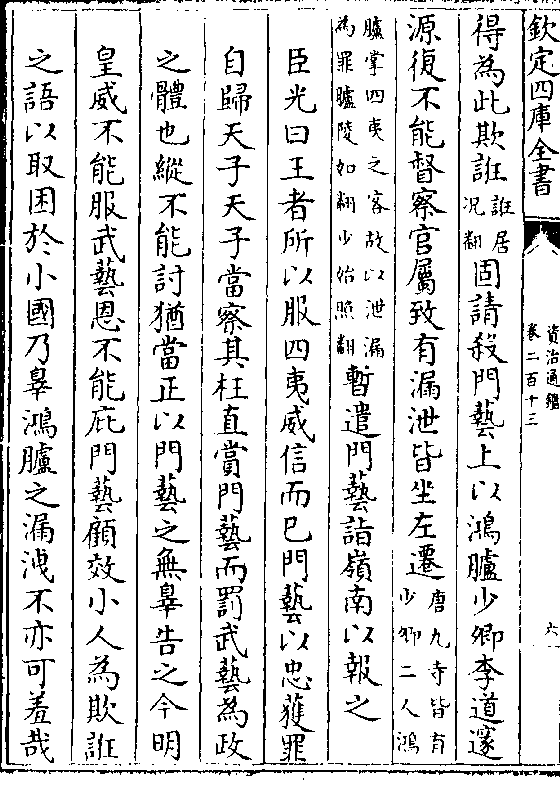 欽定四庫全書
資治通鑑
卷二百十三
六
得為此欺誑誑居況翻固請殺門藝上以鴻臚少卿李道邃
源復不能督察官屬致有漏泄皆坐左遷唐九寺皆有少卿二人鴻
臚掌四夷之客故以泄漏為罪臚陵如翻少始照翻暫遣門藝詣嶺南以報之
臣光曰王者所以服四夷威信而已門藝以忠獲罪
自歸天子天子當察其枉直賞門藝而罰武藝為政
之體也縱不能討猶當正以門藝之無辠告之今明
皇威不能服武藝恩不能庇門藝顧效小人為欺誑
之語以取困於小國乃辠鴻臚之漏洩不亦可羞哉